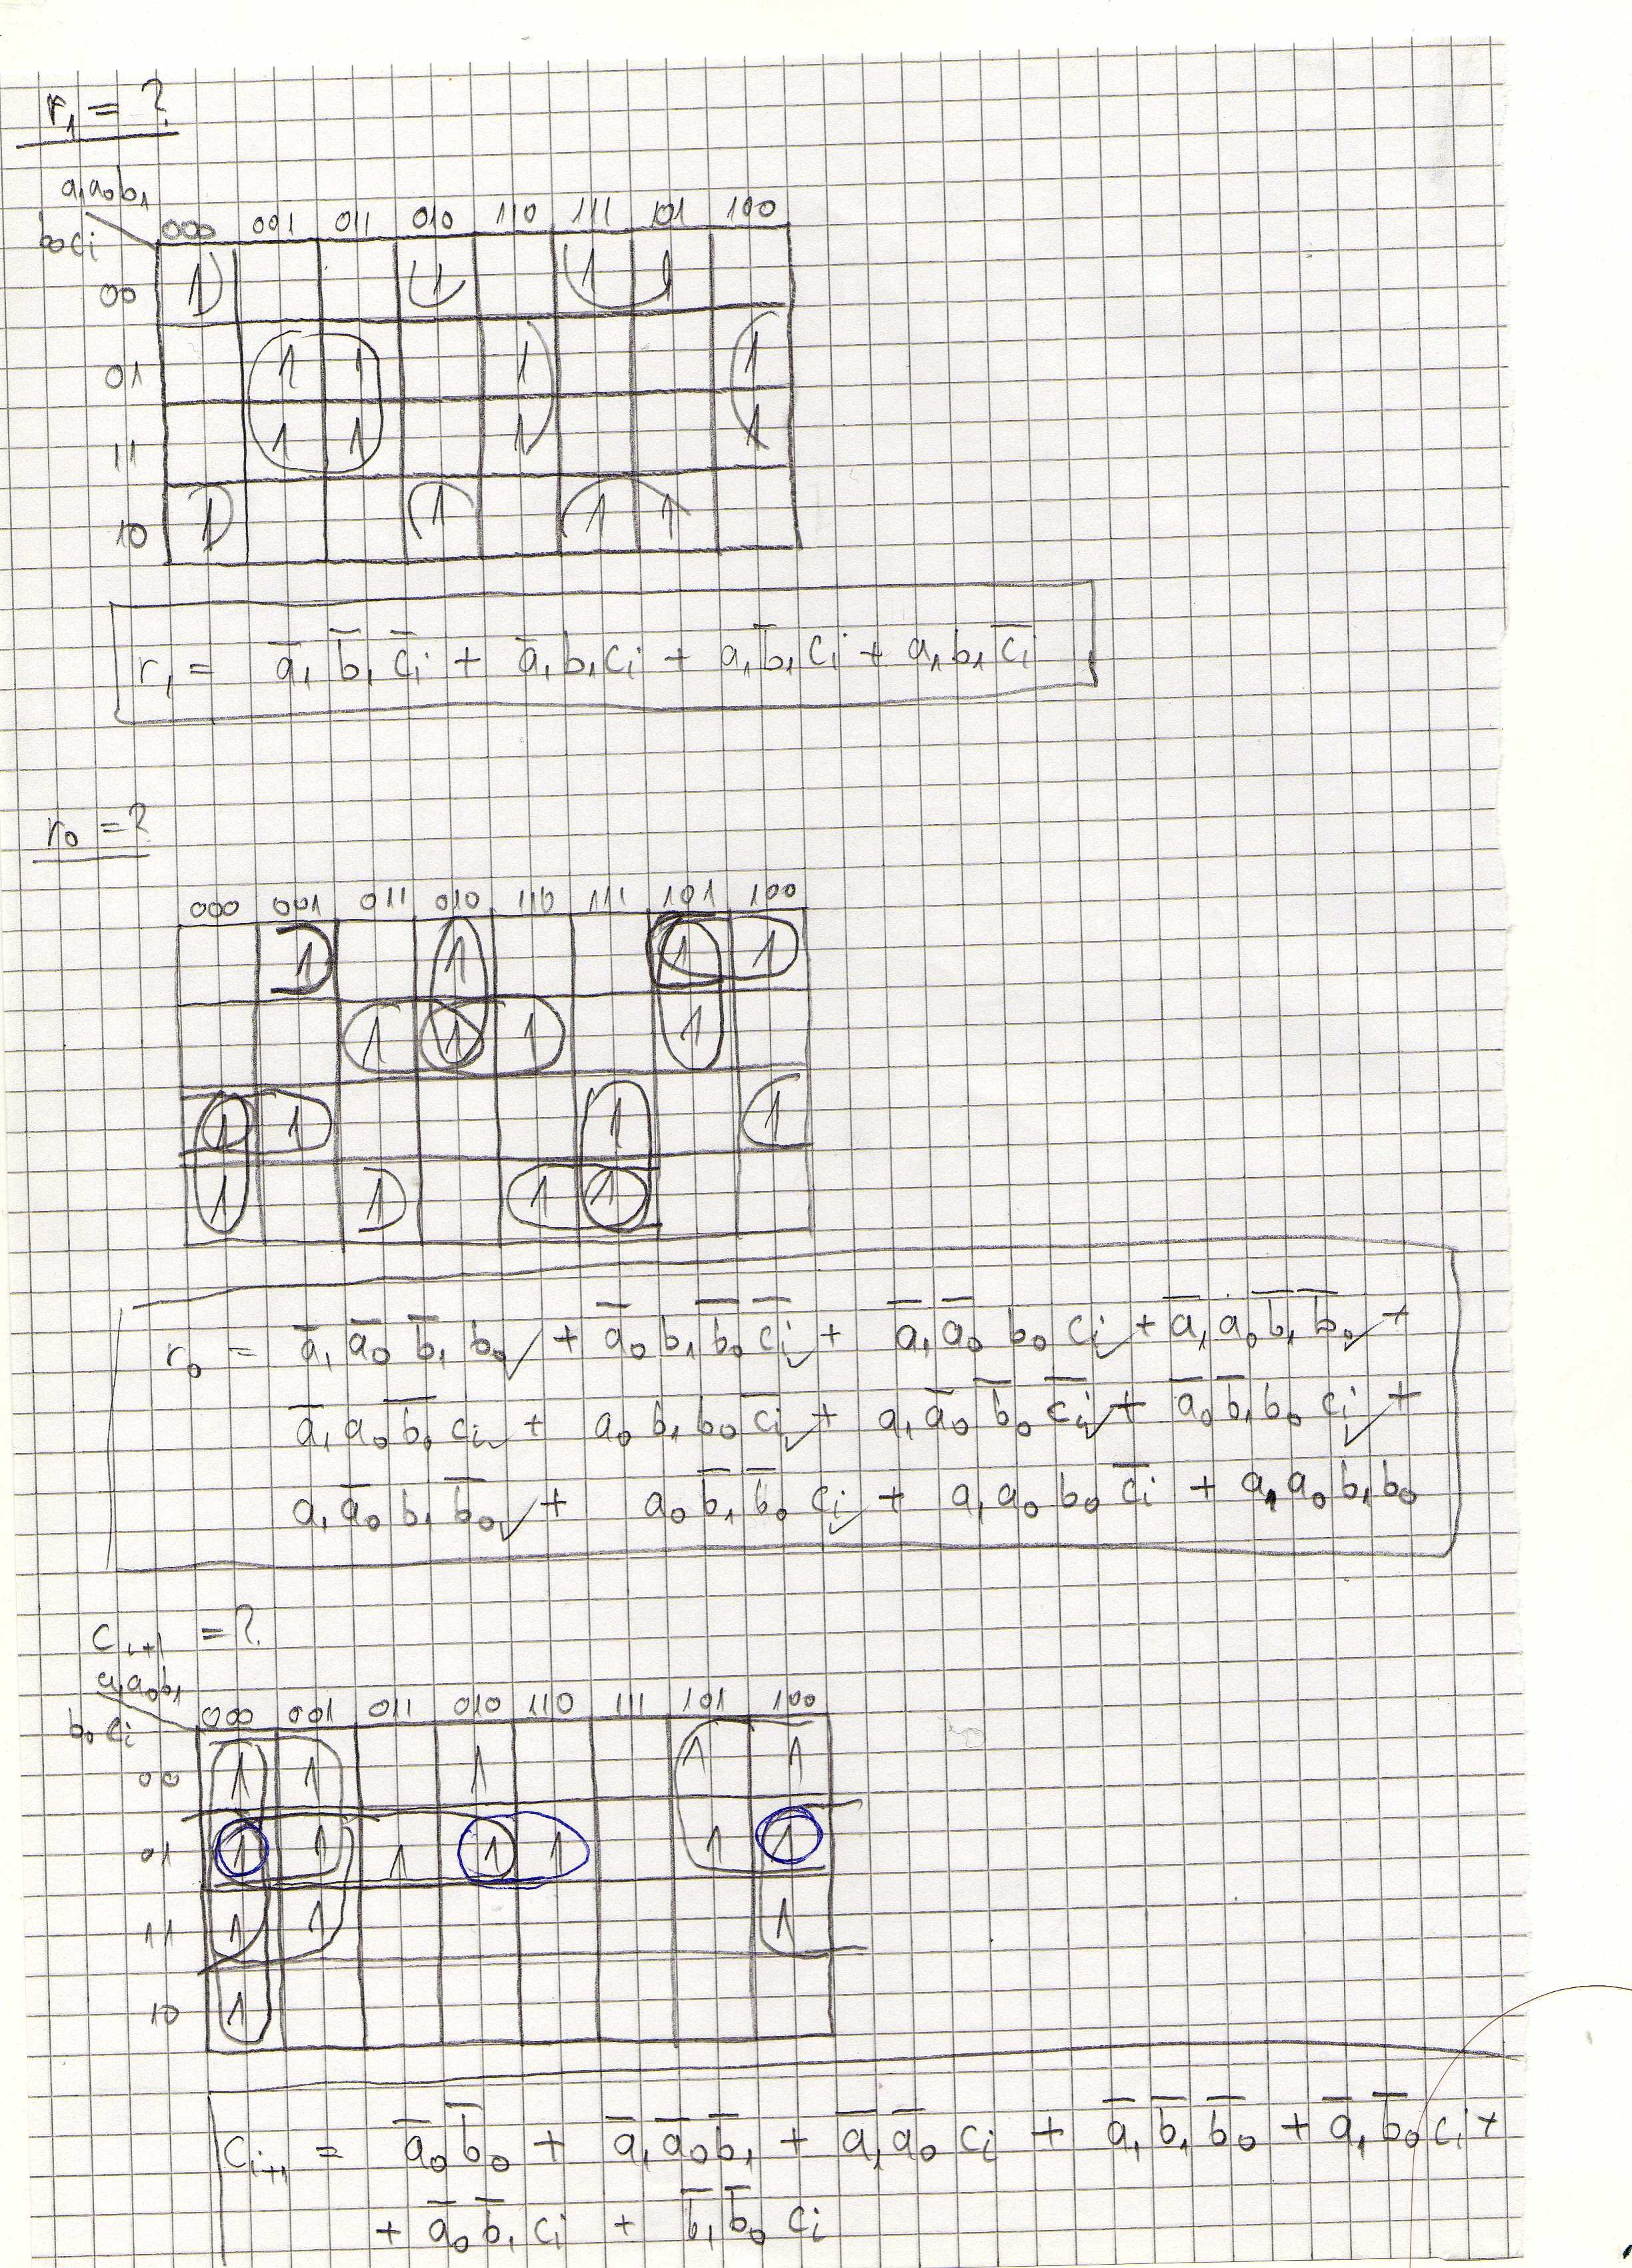 r₁ = ?
a₁a₀b₁
b₀cᵢ
000 001 011 010 110 111 101 100
00 1 1 1 1
01 1 1 1 1
11 1 1 1 1
10 1 1 1 1
r₁ = a̅₁ b̅₁ c̅ᵢ + a̅₁ b₁ cᵢ + a₁ b̅₁ cᵢ + a₁ b₁ c̅ᵢ
r₀ = ?
000 001 011 010 110 111 101 100
1 1 1 1
1 1 1 1
1 1 1 1
1 1 1 1
r₀ = a̅₁ a̅₀ b̅₁ b₀ ✓ + a̅₀ b₁ b̅₀ c̅ᵢ ✓ + a̅₁ a̅₀ b₀ cᵢ ✓ + a̅₁ a₀ b̅₁ b̅₀ ✓ +
a̅₁ a₀ b̅₀ cᵢ ✓ + a₀ b₁ b₀ c̅ᵢ ✓ + a₁ a̅₀ b̅₀ c̅ᵢ ✓ + a̅₀ b̅₁ b₀ cᵢ ✓ +
a₁ a̅₀ b₁ b̅₀ ✓ + a₀ b̅₁ b̅₀ cᵢ ✓ + a₁ a₀ b₀ c̅ᵢ + a₁ a₀ b₁ b₀
cᵢ₊₁ = ?
a₁a₀b₁
b₀ cᵢ
000 001 011 010 110 111 101 100
00 1 1 1 1 1
01 1 1 1 1 1 1 1
11 1 1 1
10 1
cᵢ₊₁ = a̅₀ b̅₀ + a̅₁ a̅₀ b̅₁ + a̅₁ a̅₀ cᵢ + a̅₁ b̅₁ b̅₀ + a̅₁ b̅₀ cᵢ +
+ a̅₀ b̅₁ cᵢ + b̅₁ b̅₀ cᵢ